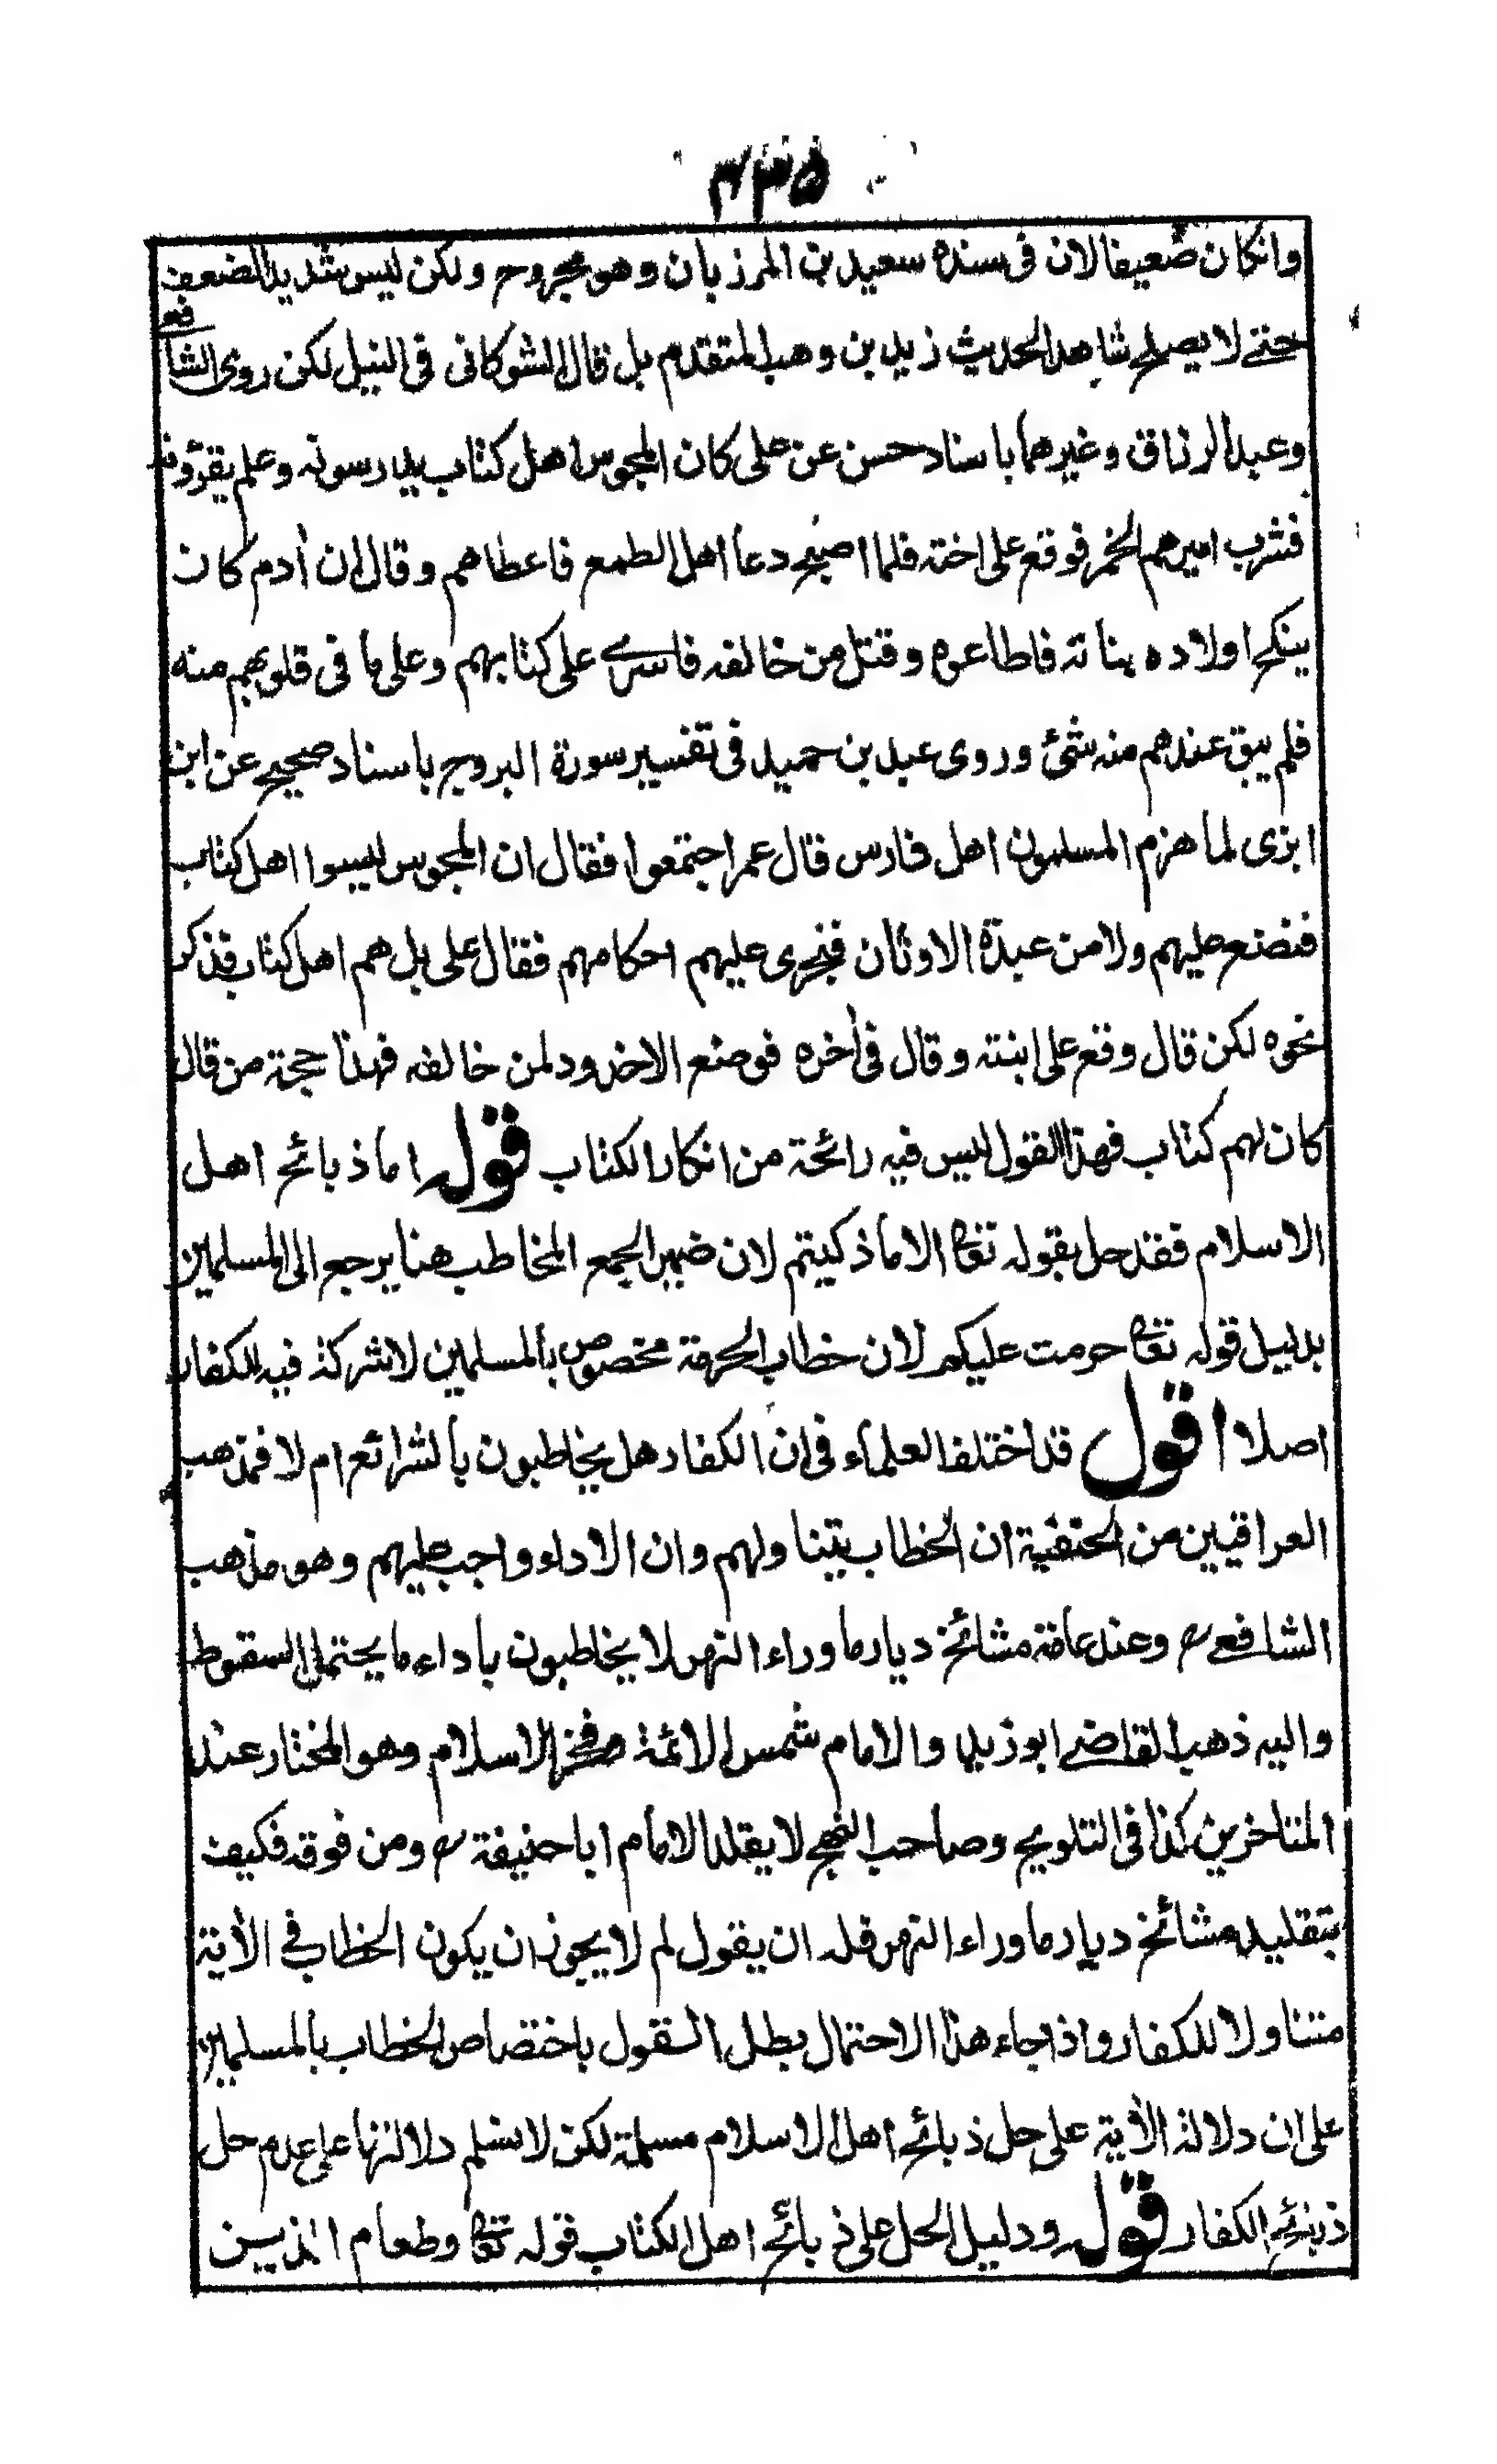 ۴۳۵
وانكان ضعيفا لان فى سنده سعيد بن المرزبان وهو مجروح ولكن ليس شديد الضعف
حتے لا يصلح شاهد الحديث زيد بن وهب المتقدم بل قال الشوكانى فى النيل لكن روى الشافعے
وعبد الرزاق وغيرهما باسناد حسن عن على كان المجوس اهل كتاب يدرسونه وعلم يقرؤنه
فشرب اميرهم الخمر فوقع على اخته فلما اصبح دعا اهل الطمع فاعطاهم وقال ان أدم كان
ينكح اولاده بناته فاطاعوه وقتل من خالفه فاسرے على كتابهم وعلى ما فى قلوبهم منه
فلم يبق عندهم منه شئ وروى عبد بن حميد فى تفسير سورة البروج باسناد صحيح عن ابن
ابزى لما هزم المسلمون اهل فارس قال عمر اجتمعوا فقال ان المجوس ليسوا اهل كتاب
فنضع عليهم ولا من عبدة الاوثان فنجرى عليهم احكامهم فقال على بل هم اهل كتاب فذكر
نحوه لكن قال وقع على ابنته وقال فى أخره فوضع الاخدود لمن خالفه فهذا حجة من قال
كان لهم كتاب فهذا القول ليس فيه رائحة من انكار الكتاب قوله اما ذبائح اهل
الاسلام فقد حل بقوله تعا الا ما ذكيتم لان ضمير الجمع المخاطب هنا يرجع الى المسلمين
بدليل قوله تعا حرمت عليكم لان خطاب الحرمة مخصوص بالمسلمين لا شركة فيه للكفار
اصلا اقول قد اختلف العلماء فى ان الكفار هل يخاطبون بالشرائع ام لا فمذهب
العراقيين من الحنفية ان الخطاب يتناولهم وان الاداء واجب عليهم وهو مذهب
الشافعے رح وعند عامة مشائخ ديار ما وراء النهر لا يخاطبون باداء ما يحتمل السقوط
واليه ذهب القاضے ابو زيد والامام شمس الائمة وفخر الاسلام وهو المختار عند
المتاخرين كذا فى التلويح وصاحب النهج لا يقلد الامام ابا حنيفة رح ومن فوقه فكيف
بتقليد مشائخ ديار ما وراء النهر فله ان يقول لم لا يجوز ان يكون الخطاب فے الأية
متناولا للكفار واذا جاء هذا الاحتمال بطل القول باختصاص الخطاب بالمسلمين
على ان دلالة الأية على حل ذبائح اهل الاسلام مسلمة لكن لا نسلم دلالتها على عدم حل
ذبائح الكفار قوله ودليل الحل على ذبائح اهل الكتاب قوله تعا وطعام الذين